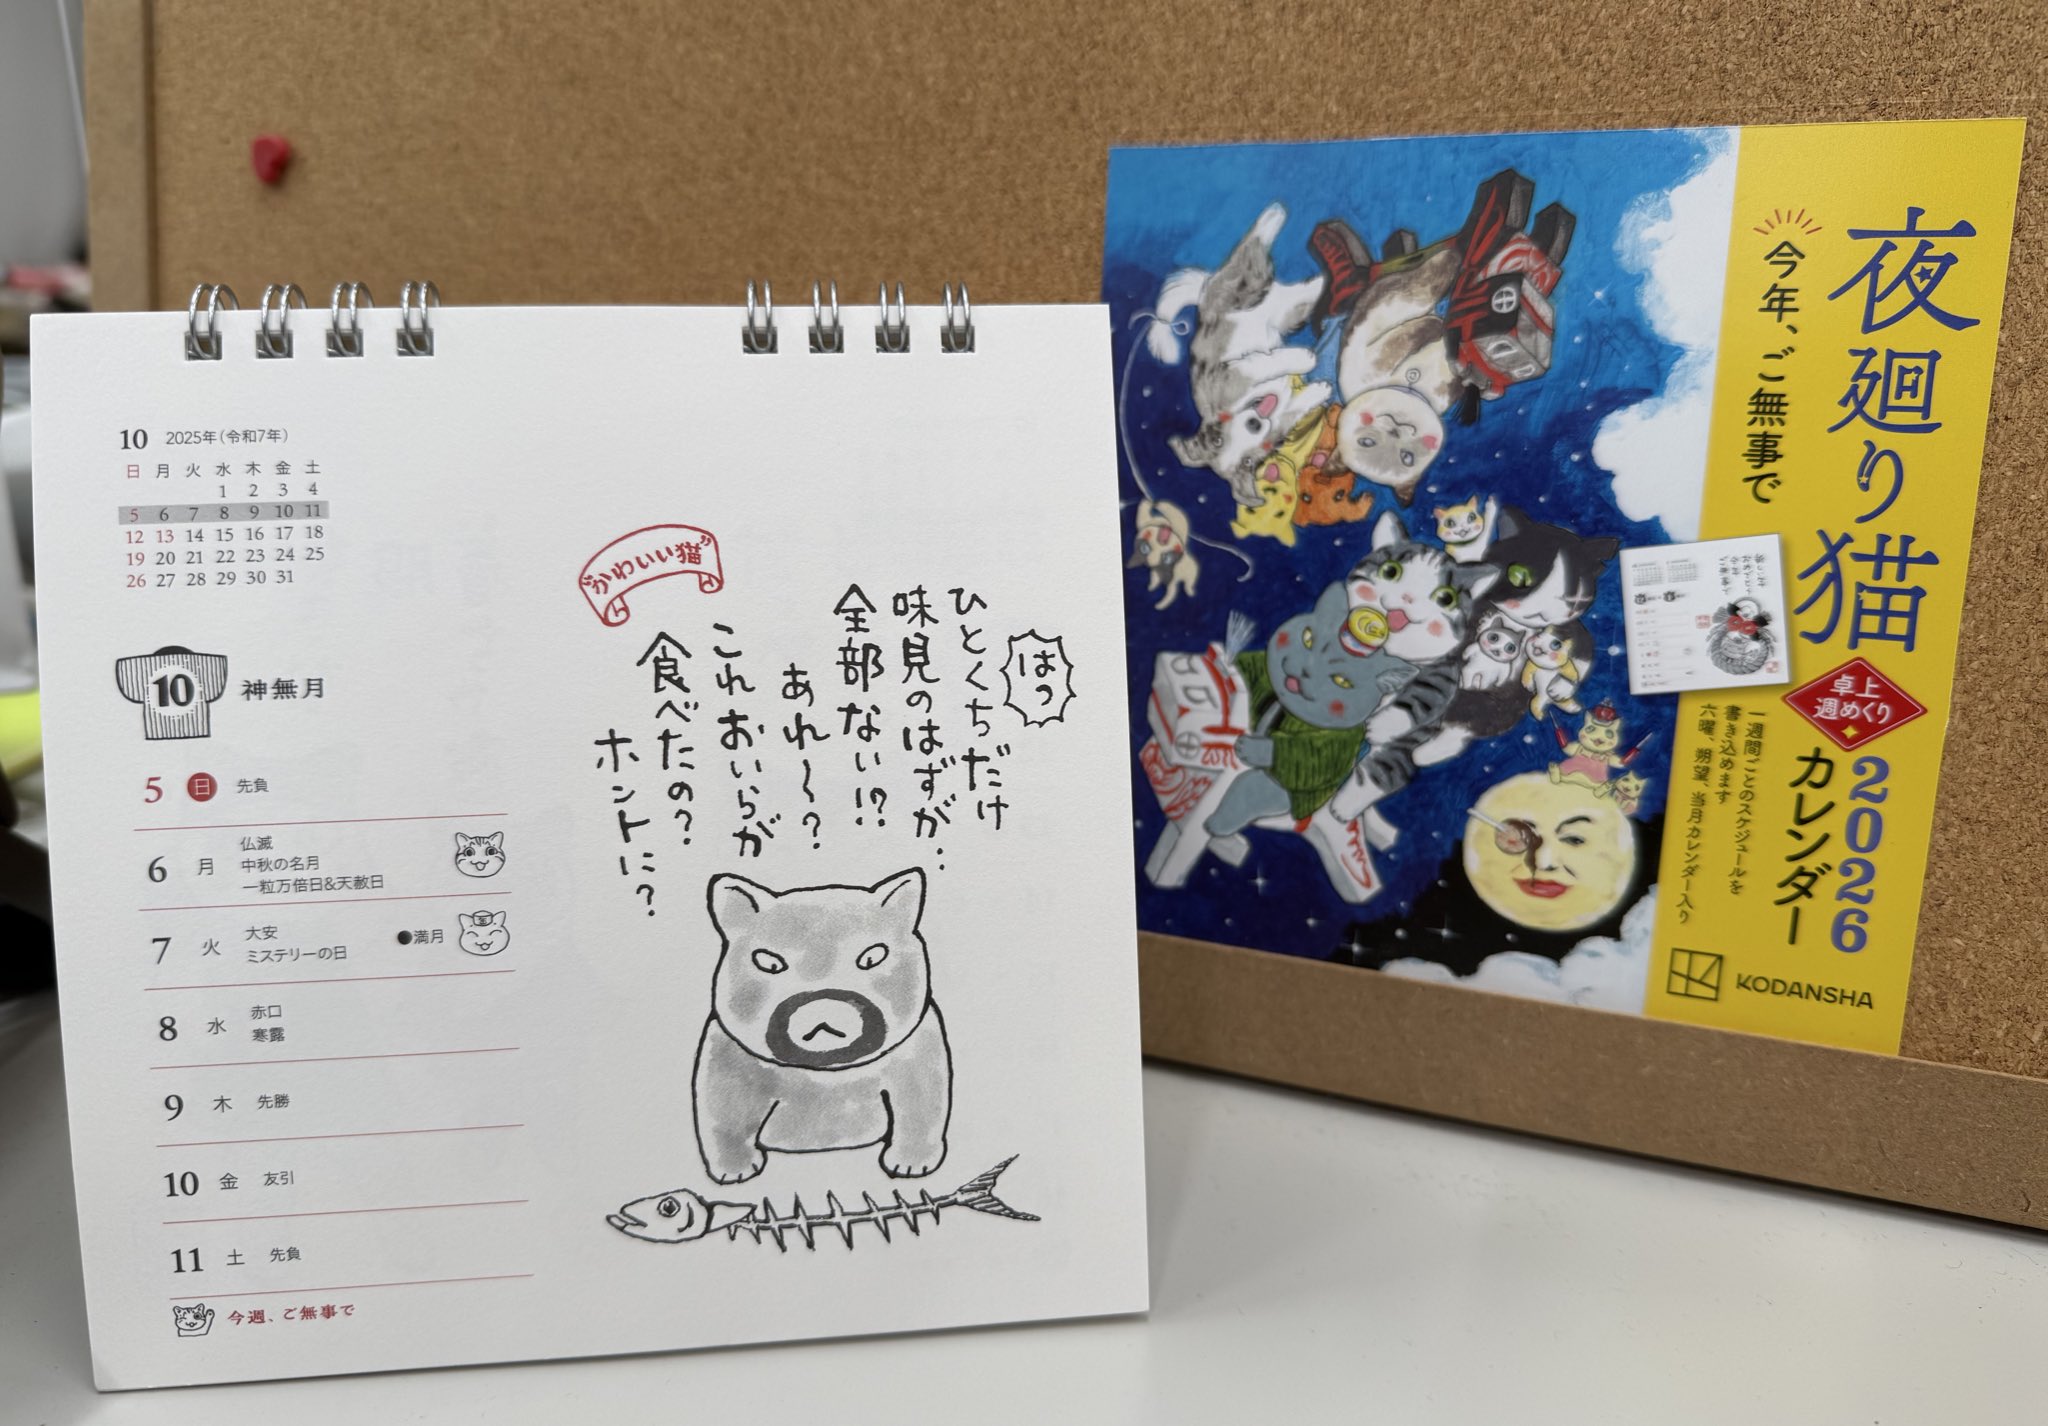 10 2025年(令和7年)
日 月 火 水 木 金 土
1 2 3 4
5 6 7 8 9 10 11
12 13 14 15 16 17 18
19 20 21 22 23 24 25
26 27 28 29 30 31
10 神無月
5 日 先負
6 月 仏滅
中秋の名月
一粒万倍日&天赦日
7 火 大安
ミステリーの日
●満月
8 水 赤口
寒露
9 木 先勝
10 金 友引
11 土 先負
今週、ご無事で
はっ
ひとくちだけ
味見のはずが…
全部ない!?
あれ〜?
これおいらが
食べたの?
ホントに?
“かわいい猫”
夜廻り猫
今年、ご無事で
卓上
週めくり
カレンダー
2026
一週間ごとのスケジュールを
書き込めます
六曜、朔望、当月カレンダー入り
KODANSHA